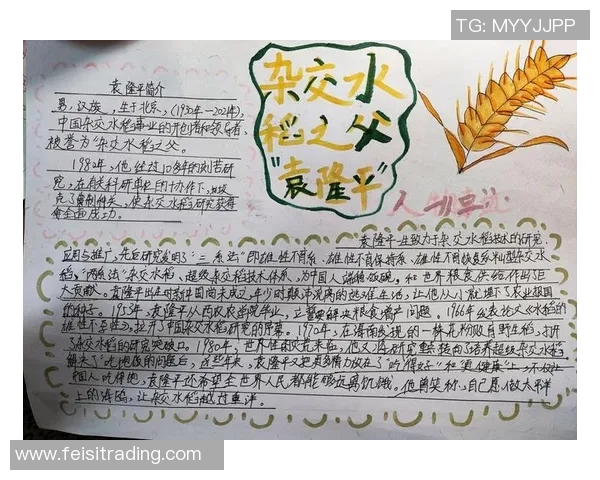 TG: MYYJJPP
杂交水
稻之父
"袁隆平"
袁隆平简介
男，汉族，生于北京，(1930年—2021年)，
中国杂交水稻事业的开创者和领导者，
被誉为"杂交水稻之父。
1982年，他经过10多年的刻苦研
究，在有关科研单位的协作下，
使杂交水稻研究获得
成功。
袁隆平一生致力于杂交水稻技术的研究、
应用与推广，先后研究发明了"三系法"即雄性不育系、雄性不育保持系、雄性不育恢复系籼型杂交水
稻、"两系法"杂交水稻、超级杂交稻技术体系，为中国人端稳饭碗，和世界粮食供给作出巨
大贡献。袁隆平出生时新中国尚未成立，年少时颠沛流离的艰难生活，让他从小就埋下了农业报国
的种子。1953年，袁隆平从西南农学院毕业，立誓要解决粮食增产问题。1966年发表论文《水稻的
雄性不孕性》，拉开了中国杂交水稻研究的序幕。1970年，在海南发现的一株花粉败育野生稻，打开
了杂交水稻研究突破口。1980年，
解决了"吃饱饭的问题后，这些年来，袁隆平又把更多精力放在了"吃得好"和"更健康"上，不仅让
国人吃得饱，袁隆平还希望全世界人民都能够远离饥饿。他曾笑称，自己愿做太平洋
上的海鸥，让杂交水稻越过重洋。
www.feisitrading.com